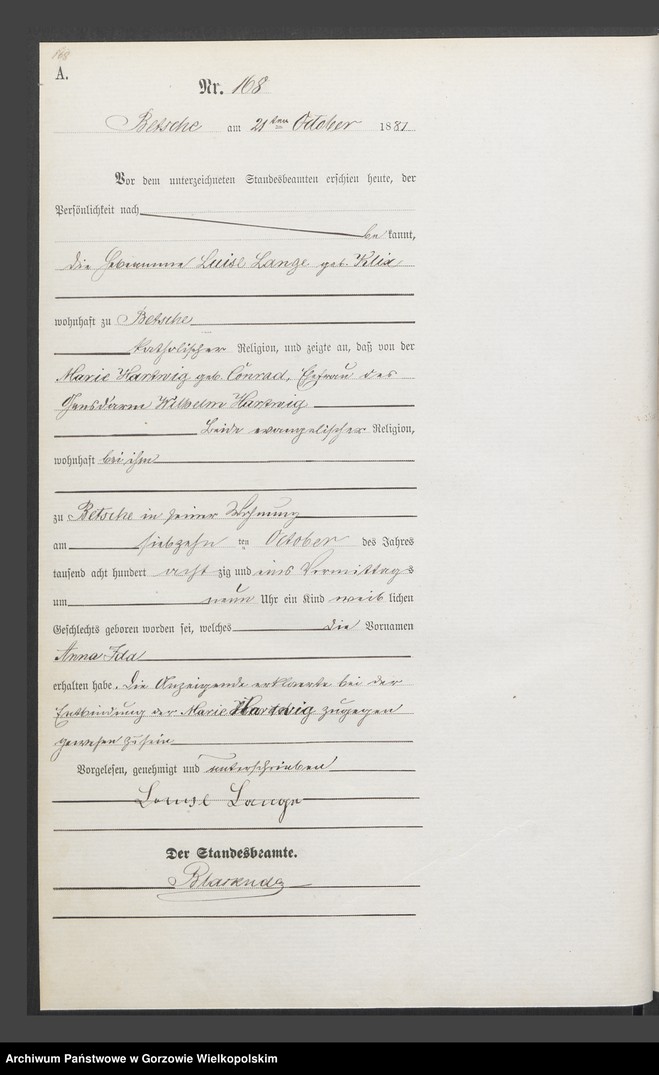 168
A.
Nr. 168
Betsche am 21ten October 1881
Vor dem unterzeichneten Standesbeamten erschien heute, der
Persönlichkeit nach
be kannt,
die Hebeamme Luise Lange geb. Klix
wohnhaft zu Betsche
katholischer Religion, und zeigte an, daß von der
Marie Hartwig geb. Conrad, Ehefrau des
Gensdarm Wilhelm Hartwig
Beide evangelischer Religion,
wohnhaft bei ihm
zu Betsche in seiner Wohnung
am siebzehn ten October des Jahres
tausend acht hundert acht zig und eins Vormittags
um neun Uhr ein Kind weib lichen
Geschlechts geboren worden sei, welches die Vornamen
Anna Ida
erhalten habe. Die Anzeigende erklaerte bei der
Entbindung der Marie Hartwig zugegen
gewesen zu sein
Vorgelesen, genehmigt und unterschrieben
Louise Lange
Der Standesbeamte.
Archiwum Państwowe w Gorzowie Wielkopolskim